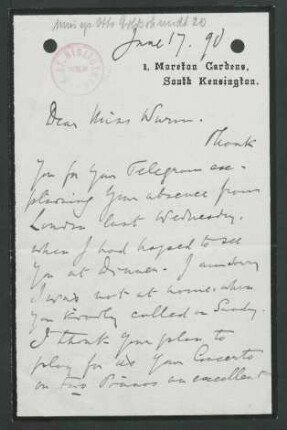 June 17. 90
1, Moreton Gardens,
South Kensington.
Dear Miss Wurm.
Thank
you for your Telegram ex-
plaining your absence from
London last Wednesday,
when I had hoped to see
you at Dinner. I am sorry
I was not at home when
you kindly called on Sunday.
I thank your plan to
play for us your Concerto
on two Pianos an excellent